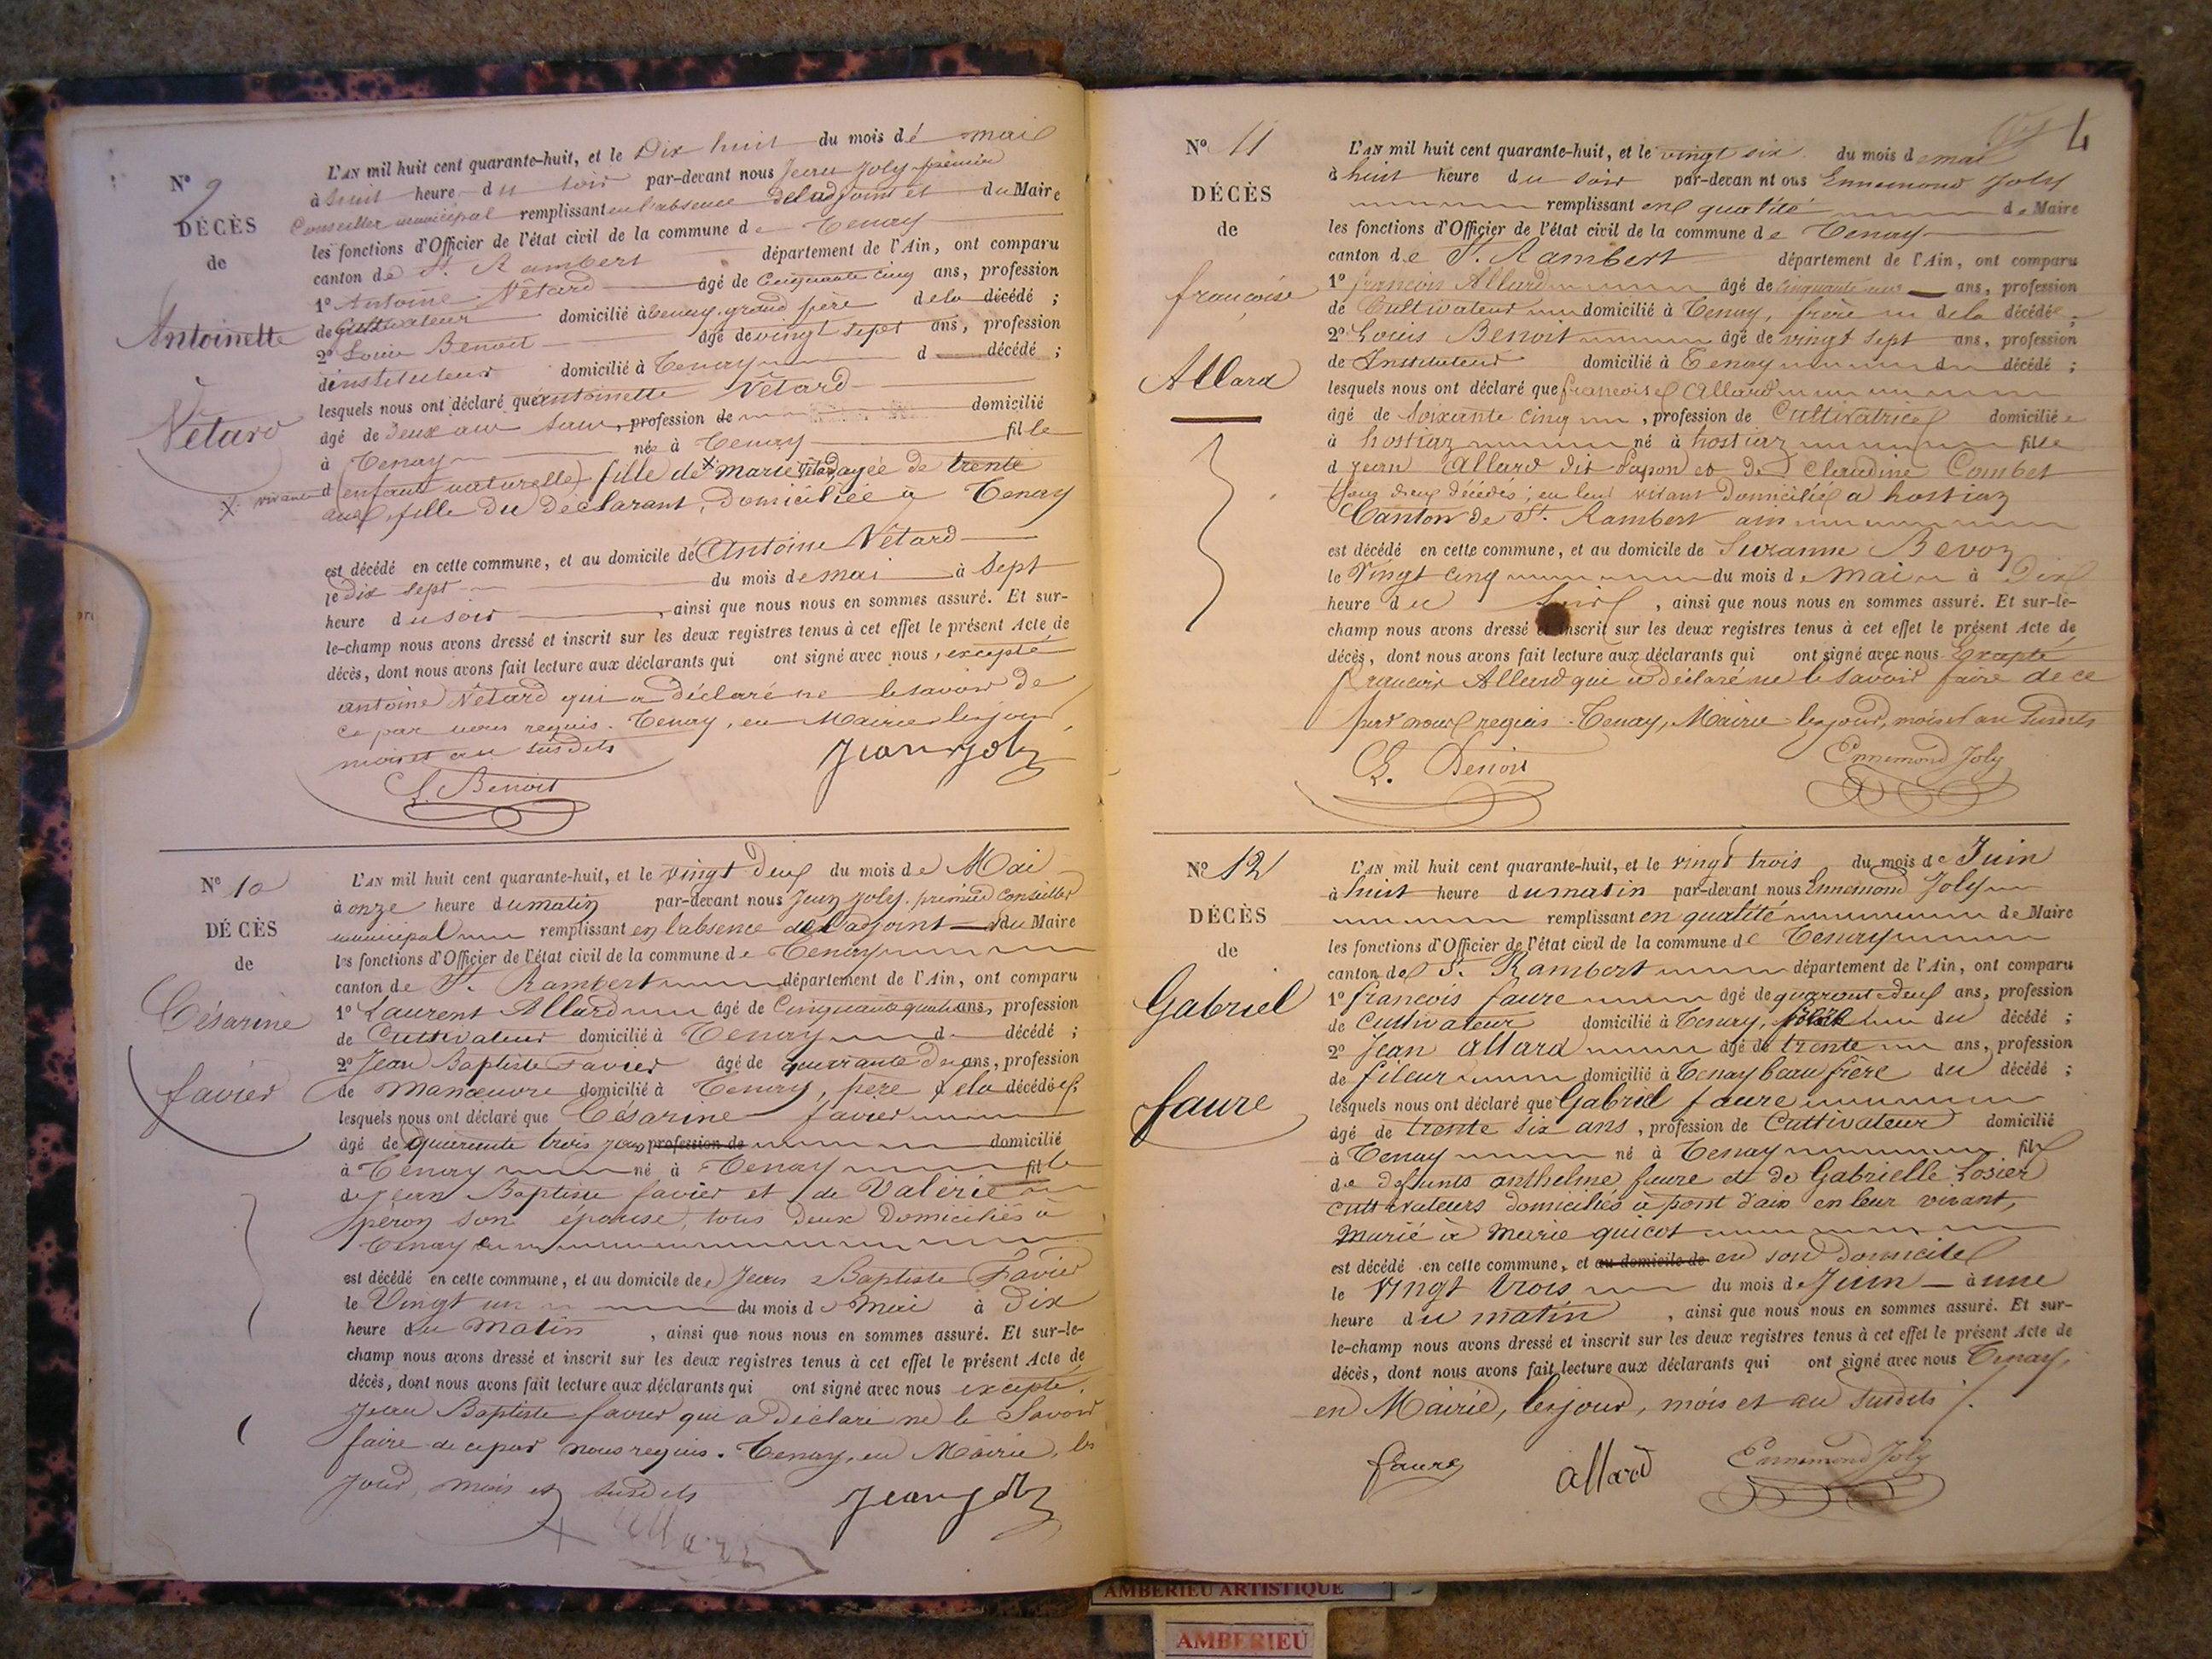 N° 9
DÉCÈS
de
Antoinette
Vétard
L'AN mil huit cent quarante-huit, et le Dix huit du mois de mai
à huit heure du soir par-devant nous Jean Joly premier
Conseiller municipal remplissant en l'absence de l'adjoint et du Maire
les fonctions d'Officier de l'état civil de la commune de Tenay
canton de St. Rambert département de l'Ain, ont comparu
1° Antoine Vétard âgé de Cinquante cinq ans, profession
de Cultivateur domicilié à Tenay, grand père de la décédé ;
2° Louis Benoit âgé de vingt sept ans, profession
d'instituteur domicilié à Tenay d décédé ;
lesquels nous ont déclaré que antoinette Vétard
âgé de Deux ans profession de domicilié
à Tenay née à Tenay fille
d (enfant naturelle) fille de X marie Vétard, agée de trente
X vivante
ans, fille du Déclarant, Domiciliée à Tenay
est décédé en cette commune, et au domicile de Antoine Vétard
le dix sept du mois de mai à Sept
heure du soir, ainsi que nous nous en sommes assuré. Et sur-
le-champ nous avons dressé et inscrit sur les deux registres tenus à cet effet le présent Acte de
décès, dont nous avons fait lecture aux déclarants qui ont signé avec nous, excepté
antoine Vétard qui a déclaré ne le savoir de
ce par nous requis. Tenay, en Mairie les jour
mois et an susdits
L. Benoit
Jean Joly
N° 10
DÉCÈS
de
Césarine
favier
L'AN mil huit cent quarante-huit, et le vingt Deux du mois de Mai
à onze heure du matin par-devant nous Jean Joly, premier Conseiller
municipal remplissant en l'absence de l'adjoint du Maire
les fonctions d'Officier de l'état civil de la commune de Tenay
canton de St. Rambert département de l'Ain, ont comparu
1° Laurent Allard âgé de Cinquante quatre ans, profession
de Cultivateur domicilié à Tenay d décédé ;
2° Jean Baptiste Favier âgé de quarante Deux ans, profession
de Manœuvre domicilié à Tenay, père de la décédée ;
lesquels nous ont déclaré que Césarine favier
âgé de quarente trois jours profession de domicilié
à Tenay né à Tenay fille
de Jean Baptiste favier et de Valérie
péron son épouse, tous deux Domiciliés à
Tenay
est décédé en cette commune, et au domicile de Jean Baptiste Favier
le Vingt un du mois de Mai à Dix
heure du Matin, ainsi que nous nous en sommes assuré. Et sur-le-
champ nous avons dressé et inscrit sur les deux registres tenus à cet effet le présent Acte de
décès, dont nous avons fait lecture aux déclarants qui ont signé avec nous excepté,
Jean Baptiste favier qui a déclaré ne le Savoir
faire de ce par nous requis. Tenay, en Mairie, les
Jour, mois et susdits
Jean Joly
Allard
4
N° 11
DÉCÈS
de
françoise
Allard
L'AN mil huit cent quarante-huit, et le vingt six du mois de mai
à huit heure du soir par-devan nt ous Ennemond Joly
remplissant en qualité de Maire
les fonctions d'Officier de l'état civil de la commune de Tenay
canton de St. Rambert département de l'Ain, ont comparu
1° francois Allard âgé de Cinquante ans, profession
de Cultivateur domicilié à Tenay, frère de la décédée ;
2° Louis Benoit âgé de vingt sept ans, profession
de Instituteur domicilié à Tenay du décédé ;
lesquels nous ont déclaré que francoise Allard
âgé de Soixante cinq, profession de Cultivatrice domiciliée
à hostiaz né à hostiaz fille
d Jean Allard dit Papon et de Claudine Combet
tous deux décédés ; en leur vivant Domiciliés a hostiaz
Canton de St. Rambert ain
est décédé en cette commune, et au domicile de Suzanne Bevoz
le Vingt cinq du mois de Mai à Dix
heure du Soir, ainsi que nous nous en sommes assuré. Et sur-le-
champ nous avons dressé et inscrit sur les deux registres tenus à cet effet le présent Acte de
décès, dont nous avons fait lecture aux déclarants qui ont signé avec nous Excepté
francois Allard qui a déclaré ne le savoir faire de ce
par nous requis. Tenay, Mairie les jour, mois et an Susdits
L. Benoit
Ennemond Joly
N° 12
DÉCÈS
de
Gabriel
faure
L'AN mil huit cent quarante-huit, et le vingt trois du mois de Juin
à huit heure du matin par-devant nous Ennemond Joly
remplissant en qualité de Maire
les fonctions d'Officier de l'état civil de la commune de Tenay
canton de St. Rambert département de l'Ain, ont comparu
1° francois faure âgé de quarante deux ans, profession
de Cultivateur domicilié à Tenay, du décédé ;
2° Jean Allard âgé de trente ans, profession
de fileur domicilié à Tenay beau frère du décédé ;
lesquels nous ont déclaré que Gabriel faure
âgé de trente six ans, profession de Cultivateur domicilié
à Tenay né à Tenay fils
de defunts anthelme faure et de Gabrielle Losier
cultivateurs domiciliés à pont d'ain en leur vivant,
Marié à Marie quicot
est décédé en cette commune, et au domicile de en son Domicile
le vingt trois du mois de Juin à une
heure du matin, ainsi que nous nous en sommes assuré. Et sur-
le-champ nous avons dressé et inscrit sur les deux registres tenus à cet effet le présent Acte de
décès, dont nous avons fait lecture aux déclarants qui ont signé avec nous Tenay,
en Mairie, les jour, mois et an Susdits /.
faure
allard
Ennemond Joly
AMBERIEU ARTISTIQUE
AMBERIEU